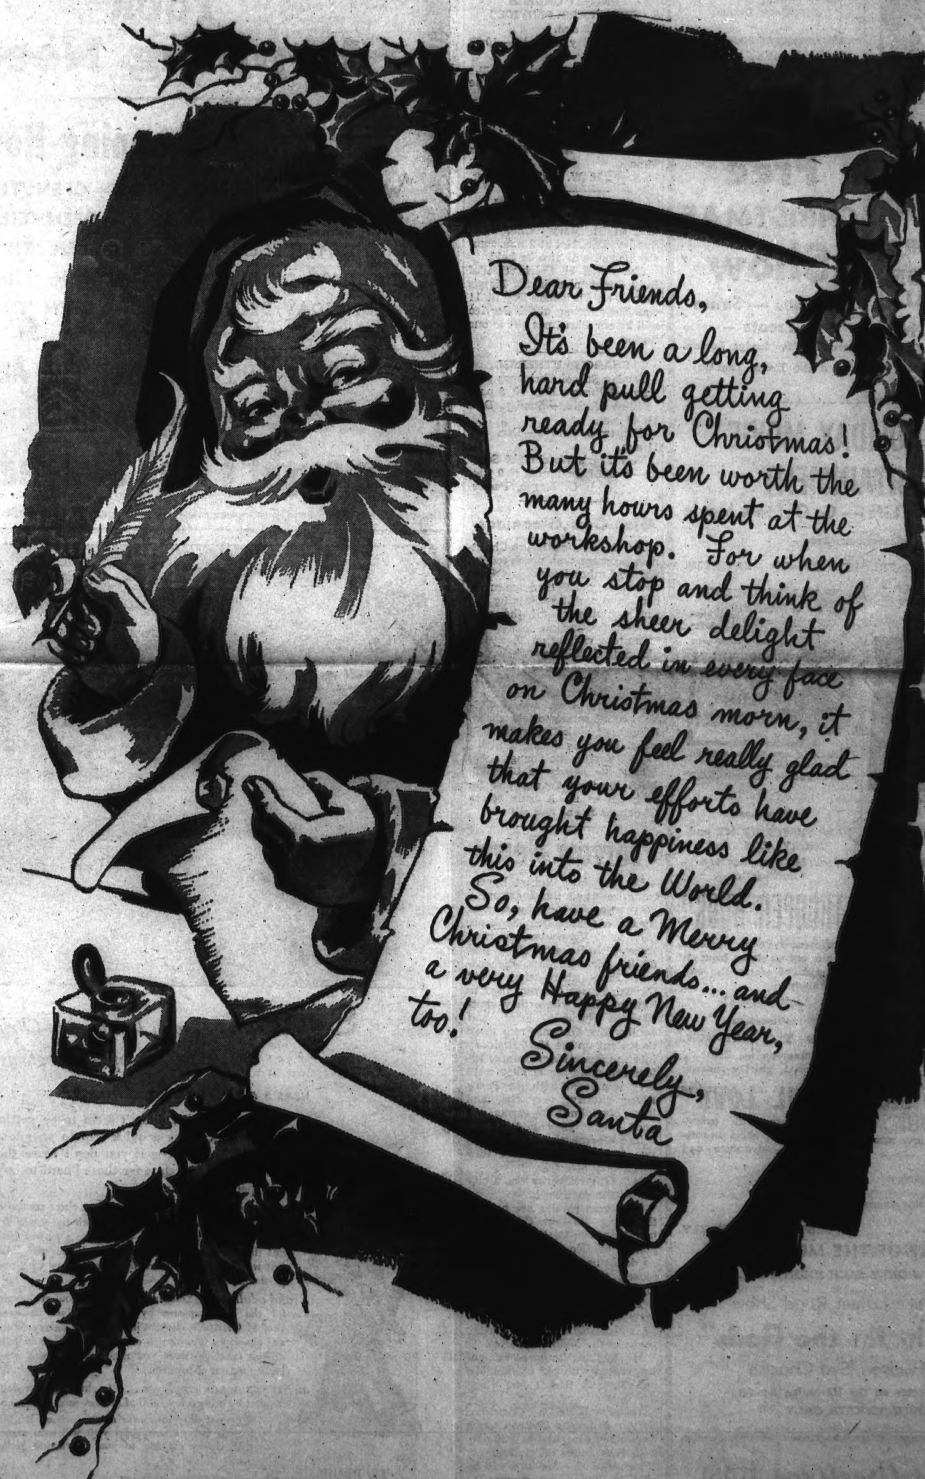 Dear Friends,
It's been a long,
hard pull getting
ready for Christmas!
But it's been worth the
many hours spent at the
workshop. For when
you stop and think of
the sheer delight
reflected in every face
on Christmas morn, it
makes you feel really glad
that your efforts have
brought happiness like
this into the World.
So, have a Merry
Christmas friends... and
a very Happy New Year,
too!
Sincerely,
Santa